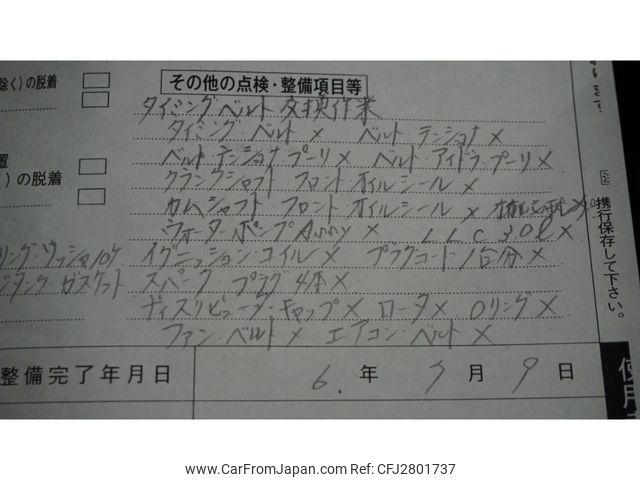 除く)の脱着
その他の点検・整備項目等
タイミングベルト交換作業
タイミング ベルト × ベルト・テンショナ ×
ベルト・テンショナ プーリ × ベルト・アイドラ・プーリ ×
置
)の脱着
クランクシャフト フロント・オイルシール ×
カムシャフト フロント・オイルシール ×
ウォーターポンプ Assy × LLC 3.0ℓ ×
リング・ワッシャ
イグニッション・コイル × プラグコード 1台分 ×
タンク・ガスケット
スパーク・プラグ 4本 ×
ディストリビュータ・キャップ × ロータ × Oリング ×
ファン・ベルト × エアコン・ベルト ×
整備完了年月日
6. 年 7 月 9 日
携行保存して下さい。
ます。
使用
www.CarFromJapan.com - Car From Japan - CFJ2801737